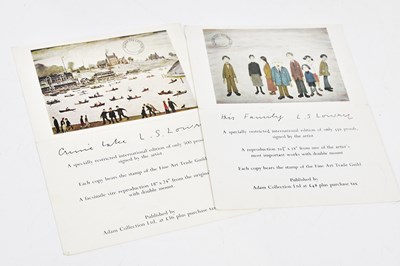 Crime Lake L.S. Lowry
A specially restricted international edition of only 500 proofs,
signed by the artist.
Each copy bears the stamp of the Fine Art Trade Guild
A facsimile size reproduction 18" x 24" from the original
with double mount.
Published by
Adam Collection Ltd at £36 plus purchase tax
His Family L S Lowry
A specially restricted international edition of only 550 proofs,
signed by the artist.
A reproduction 19¾" x 16" from one of the artist's
most important works with double mount.
Each copy bears the stamp of the Fine Art Trade Guild.
Published by
Adam Collection Ltd at £48 plus purchase tax